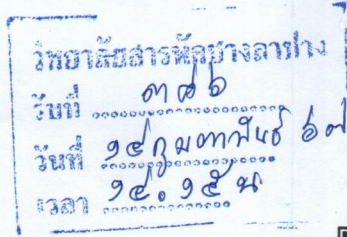 วิทยาลัยสารพัดช่างลำปาง
รับที่ ๓๘๖
วันที่ ๑๔ กุมภาพันธ์ ๖๗
เวลา ๑๔.๑๕ น